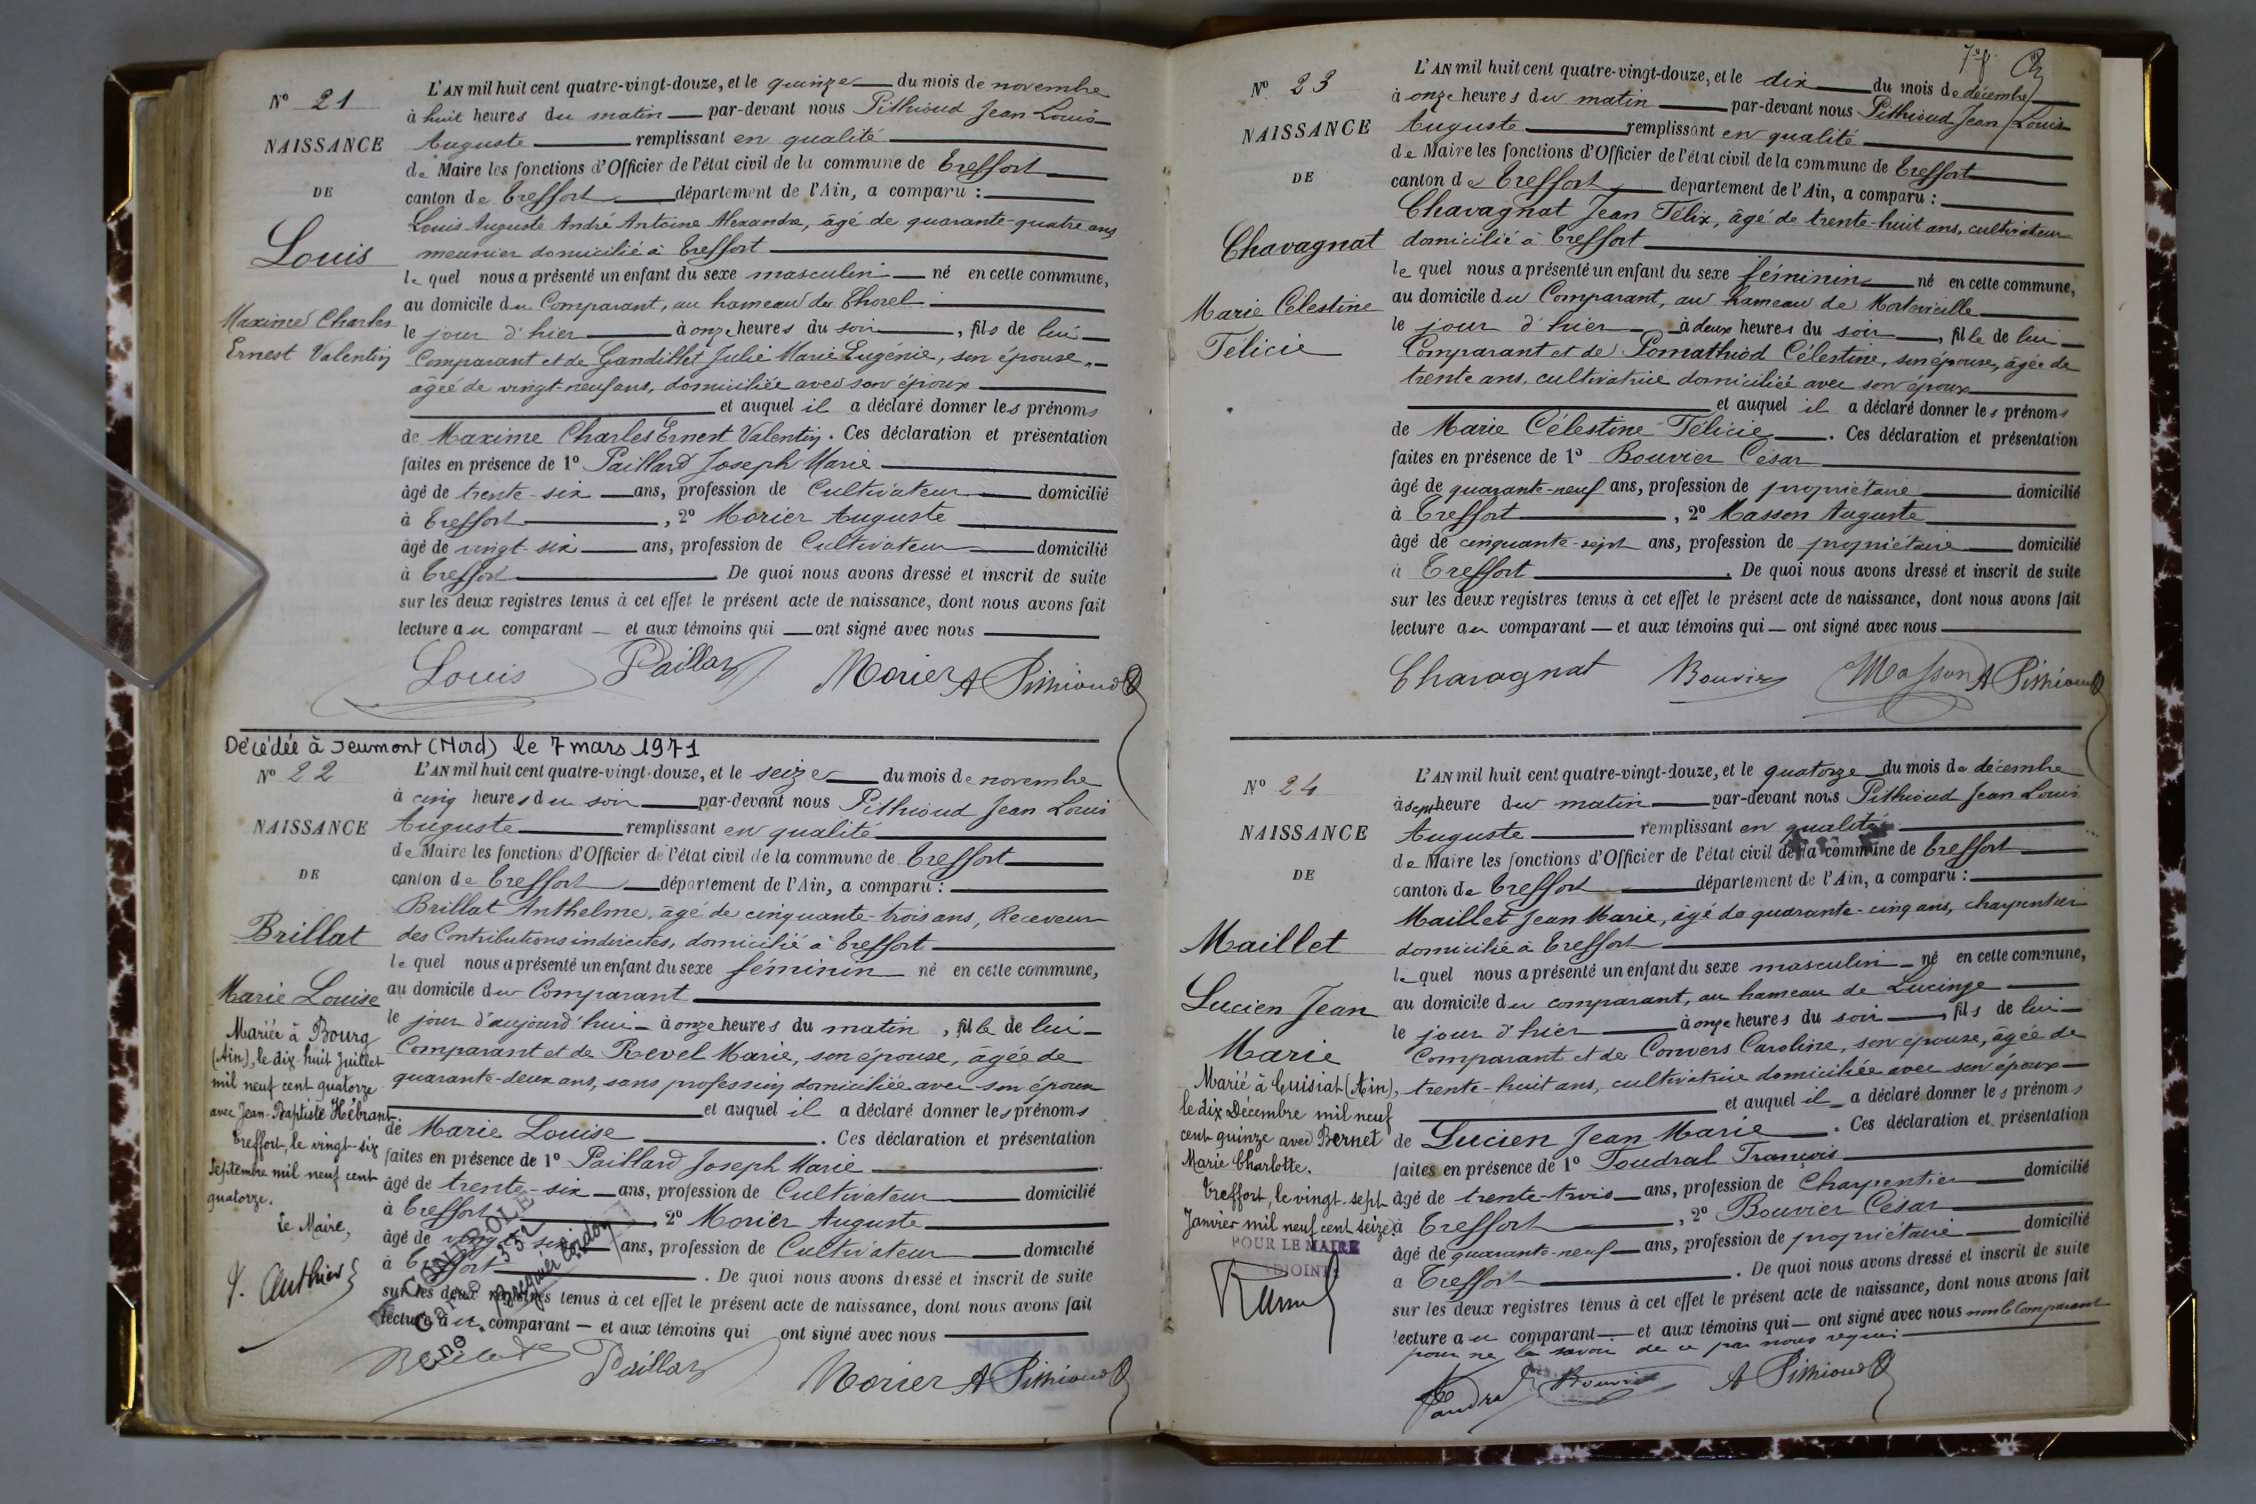 N° 21
NAISSANCE
DE
Louis
Maxime Charles
Ernest Valentin
L'AN mil huit cent quatre-vingt-douze, et le quinze du mois de novembre
à huit heures du matin par-devant nous Pithioud Jean Louis
Auguste remplissant en qualité
de Maire les fonctions d'Officier de l'état civil de la commune de Treffort
canton de Treffort département de l'Ain, a comparu :
Louis Auguste André Antoine Alexandre, âgé de quarante-quatre ans
meunier domicilié à Treffort
lequel nous a présenté un enfant du sexe masculin né en cette commune,
au domicile du Comparant, au hameau de Thorel
le jour d'hier à onze heures du soir, fils de lui
Comparant et de Gandillet Julie Marie Eugénie, son épouse,
âgée de vingt-neuf ans, domiciliée avec son époux
et auquel il a déclaré donner les prénoms
de Maxime Charles Ernest Valentin. Ces déclaration et présentation
faites en présence de 1° Paillard Joseph Marie
âgé de trente-six ans, profession de Cultivateur domicilié
à Treffort, 2° Morier Auguste
âgé de vingt-six ans, profession de Cultivateur domicilié
à Treffort De quoi nous avons dressé et inscrit de suite
sur les deux registres tenus à cet effet le présent acte de naissance, dont nous avons fait
lecture au comparant et aux témoins qui ont signé avec nous
Louis Paillard Morier A Pithioud
Décédée à Jeumont (Nord) le 7 mars 1971
N° 22
NAISSANCE
DE
Brillat
Marie Louise
Mariée à Bourg
(Ain), le dix-huit Juillet
mil neuf cent quatorze
avec Jean-Baptiste Hébrant.
Treffort, le vingt-six
Septembre mil neuf cent
quatorze.
Le Maire,
L'AN mil huit cent quatre-vingt-douze, et le seize du mois de novembre
à cinq heures du soir par-devant nous Pithioud Jean Louis
Auguste remplissant en qualité
de Maire les fonctions d'Officier de l'état civil de la commune de Treffort
canton de Treffort département de l'Ain, a comparu :
Brillat Anthelme, âgé de cinquante-trois ans, Receveur
des Contributions indirectes, domicilié à Treffort
lequel nous a présenté un enfant du sexe féminin né en cette commune,
au domicile du Comparant
le jour d'aujourd'hui à onze heures du matin, fille de lui
Comparant et de Revel Marie, son épouse, âgée de
quarante-deux ans, sans profession domiciliée avec son époux
et auquel il a déclaré donner les prénoms
de Marie Louise. Ces déclaration et présentation
faites en présence de 1° Paillard Joseph Marie
âgé de trente-six ans, profession de Cultivateur domicilié
à Treffort, 2° Morier Auguste
âgé de vingt-six ans, profession de Cultivateur domicilié
à Treffort. De quoi nous avons dressé et inscrit de suite
sur les deux registres tenus à cet effet le présent acte de naissance, dont nous avons fait
lecture au comparant et aux témoins qui ont signé avec nous
CONTROLE
Paillard Morier A Pithioud
N° 23
NAISSANCE
DE
Chavagnat
Marie Célestine
Félicie
L'AN mil huit cent quatre-vingt-douze, et le dix du mois de décembre
à onze heures du matin par-devant nous Pithioud Jean Louis
Auguste remplissant en qualité
de Maire les fonctions d'Officier de l'état civil de la commune de Treffort
canton de Treffort département de l'Ain, a comparu :
Chavagnat Jean Félix, âgé de trente-huit ans, cultivateur
domicilié à Treffort
lequel nous a présenté un enfant du sexe féminin né en cette commune,
au domicile du Comparant, au hameau de Montmeille
le jour d'hier à deux heures du soir, fille de lui
Comparant et de Pomathiod Célestine, son épouse, âgée de
trente ans, cultivatrice domiciliée avec son époux
et auquel il a déclaré donner les prénoms
de Marie Célestine Félicie. Ces déclaration et présentation
faites en présence de 1° Bouvier César
âgé de quarante-neuf ans, profession de propriétaire domicilié
à Treffort, 2° Masson Auguste
âgé de cinquante-sept ans, profession de propriétaire domicilié
à Treffort. De quoi nous avons dressé et inscrit de suite
sur les deux registres tenus à cet effet le présent acte de naissance, dont nous avons fait
lecture au comparant et aux témoins qui ont signé avec nous
Chavagnat Bouvier Masson A Pithioud
N° 24
NAISSANCE
DE
Maillet
Lucien Jean
Marie
Marié à Cuisiat (Ain),
le dix Décembre mil neuf
cent quinze avec Bernet
Marie Charlotte.
Treffort, le vingt-sept
Janvier mil neuf cent seize.
POUR LE MAIRE
ADJOINT
L'AN mil huit cent quatre-vingt-douze, et le quatorze du mois de décembre
à sept heure du matin par-devant nous Pithioud Jean Louis
Auguste remplissant en qualité
de Maire les fonctions d'Officier de l'état civil de la commune de Treffort
canton de Treffort département de l'Ain, a comparu :
Maillet Jean Marie, âgé de quarante-cinq ans, charpentier
domicilié à Treffort
lequel nous a présenté un enfant du sexe masculin né en cette commune,
au domicile du comparant, au hameau de Lucinge
le jour d'hier à onze heures du soir, fils de lui
Comparant et de Convers Caroline, son épouse, âgée de
trente-huit ans, cultivatrice domiciliée avec son époux
et auquel il a déclaré donner les prénoms
de Lucien Jean Marie. Ces déclaration et présentation
faites en présence de 1° Foudral François
âgé de trente-trois ans, profession de Charpentier domicilié
à Treffort, 2° Bouvier César
âgé de quarante-neuf ans, profession de propriétaire domicilié
à Treffort. De quoi nous avons dressé et inscrit de suite
sur les deux registres tenus à cet effet le présent acte de naissance, dont nous avons fait
lecture au comparant et aux témoins qui ont signé avec nous non le Comparant
pour ne le savoir de ce par nous requis
Bouvier A Pithioud